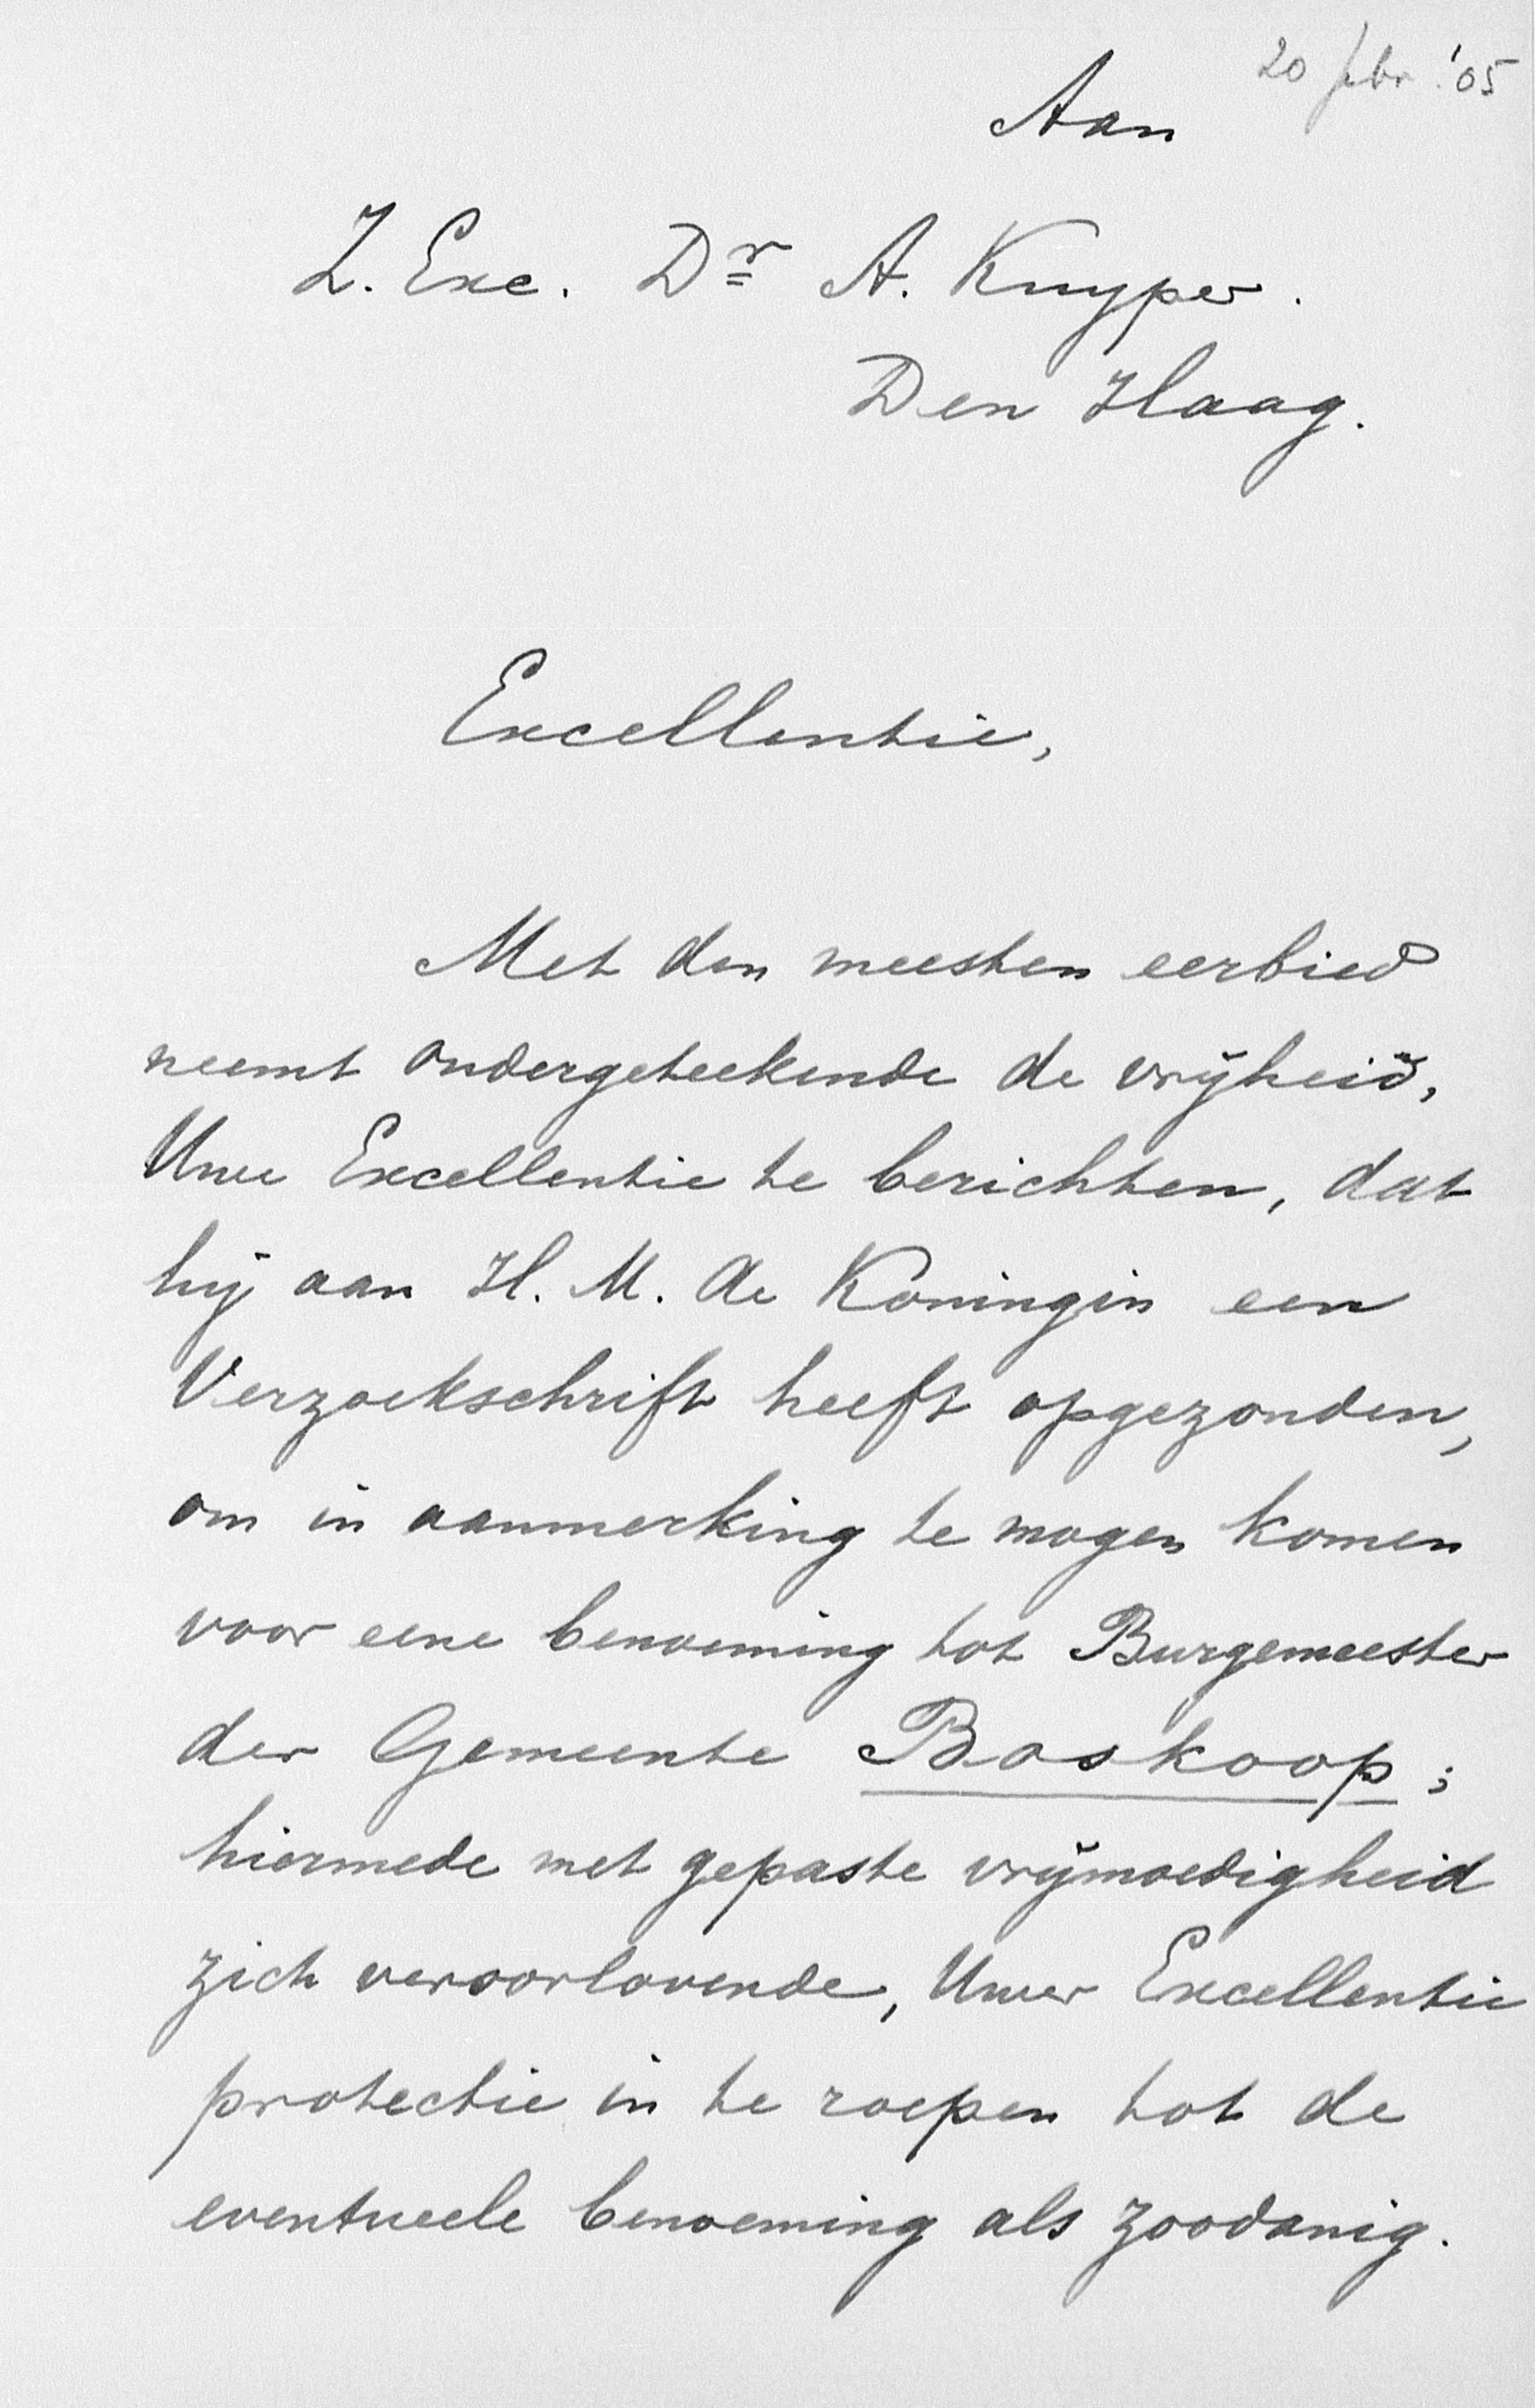 20 febr. '05
Aan
Z. Exc. Dr A. Kuyper.
Den Haag.
Excellentie,
Met den meesten eerbied
neemt ondergeteekende de vrijheid,
Uwe Excellentie te berichten, dat
hij aan H. M. de Koningin een
Verzoekschrift heeft opgezonden,
om in aanmerking te mogen komen
voor eene benoeming tot Burgemeester
der Gemeente Boskoop;
hiermede met gepaste vrijmoedigheid
zich veroorlovende, Uwer Excellentie
protectie in te roepen tot de
eventueele benoeming als zoodanig.